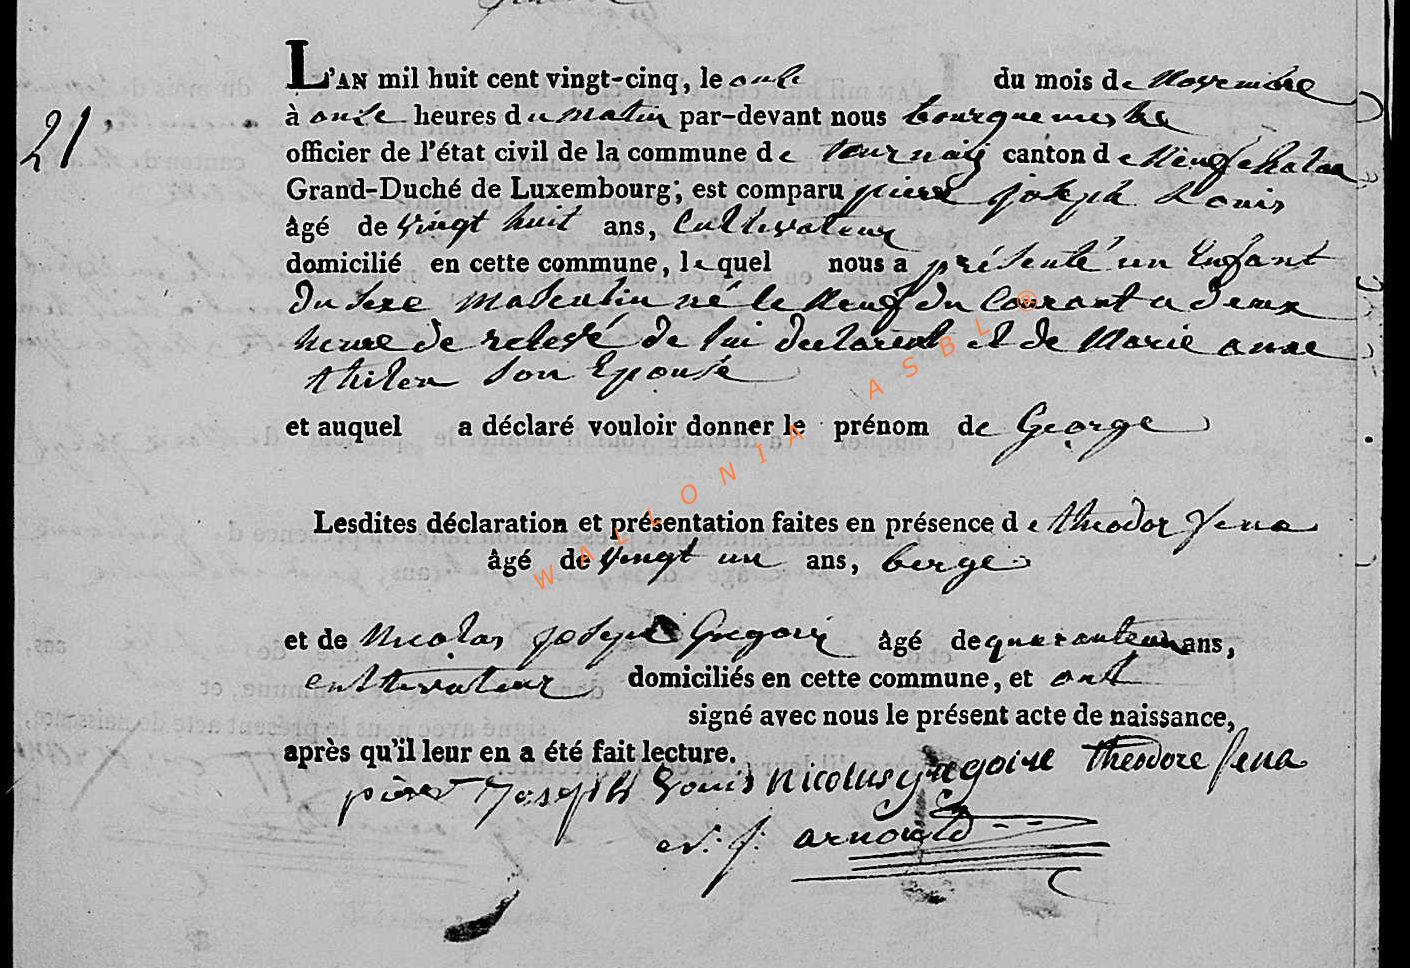 21
L'AN mil huit cent vingt-cinq, le onze du mois de Novembre
à onze heures du matin par-devant nous bourguemestre
officier de l'état civil de la commune de tournay canton de Neufchateau
Grand-Duché de Luxembourg; est comparu pierre joseph Louis
âgé de vingt huit ans, Cultivateur
domicilié en cette commune, lequel nous a présenté un Enfant
du sexe masculin né le Neuf du Courant a deux
heure de relevé de lui declarent et de Marie anne
son Epouse
et auquel a déclaré vouloir donner le prénom de George
Lesdites déclaration et présentation faites en présence de theodor Jena
âgé de vingt un ans, berge
et de Nicolas joseph Gregoire âgé de quaranteun ans,
cultivateur domiciliés en cette commune, et ont
signé avec nous le présent acte de naissance,
après qu'il leur en a été fait lecture.
pierre Joseph Louis Nicolas gregoire theodore Jena
j. arnould
WALLONIA ASBL ®